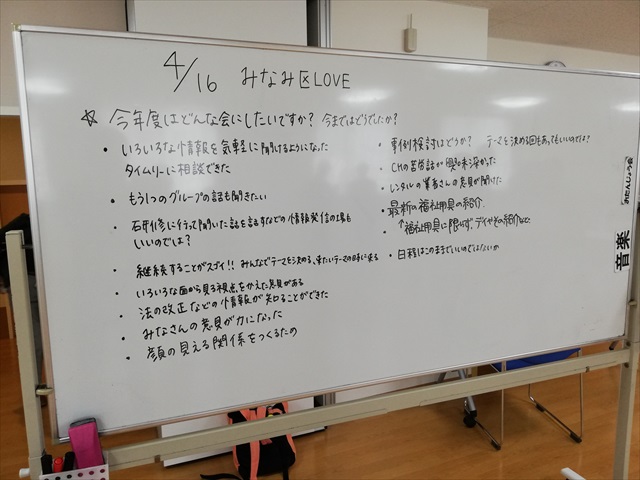 4/16 みなみ区LOVE
☆ 今年度はどんな会にしたいですか？ 今まではどうでしたか？
・いろいろな情報を気軽に聞けるようになった
タイムリーに相談できた
・もう1つのグループの話も聞きたい
・研修に行って聞いた話を話すなどの情報発信の場も
いいのでは？
・継続することがスゴイ!! みんなでテーマを決める、来たいテーマの日時に来る
・いろいろな面から見る視点をかえた意見がある
・法の改正などの情報が知ることができた
・みなさんの意見が力になった
・顔の見える関係をつくるため
・事例検討はどうか？ テーマを決める回もあってもいいのでは？
・CMの苦労話が興味深かった
・レンタルの業者さんの意見が聞けた
・最新の福祉用具の紹介
・↑福祉用具に限らず、デイやその紹介など
・日程はこのままでいいのではないか
おたんじょう
音楽